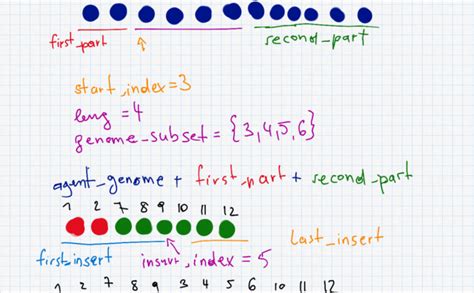 first_part second_part
start_index=3
leng =4
genome_subset = {3,4,5,6}
agent_genome + first_part + second_part
1 2 7 8 9 10 11 12
last_insert
firstinsert insert_index = 5
1 2 3 4 5 6 7 8 9 10 11 12